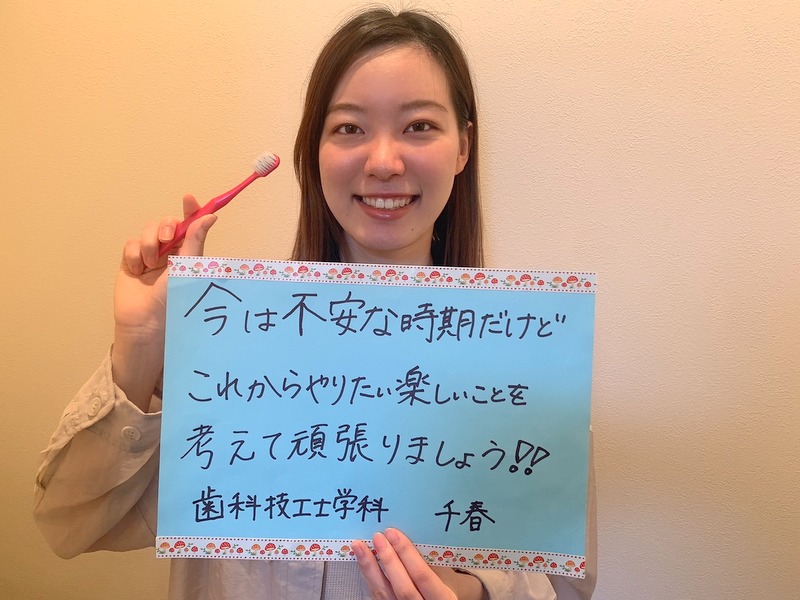 今は不安な時期だけど
これからやりたい楽しいことを
考えて頑張りましょう!!
歯科技工士学科 千春